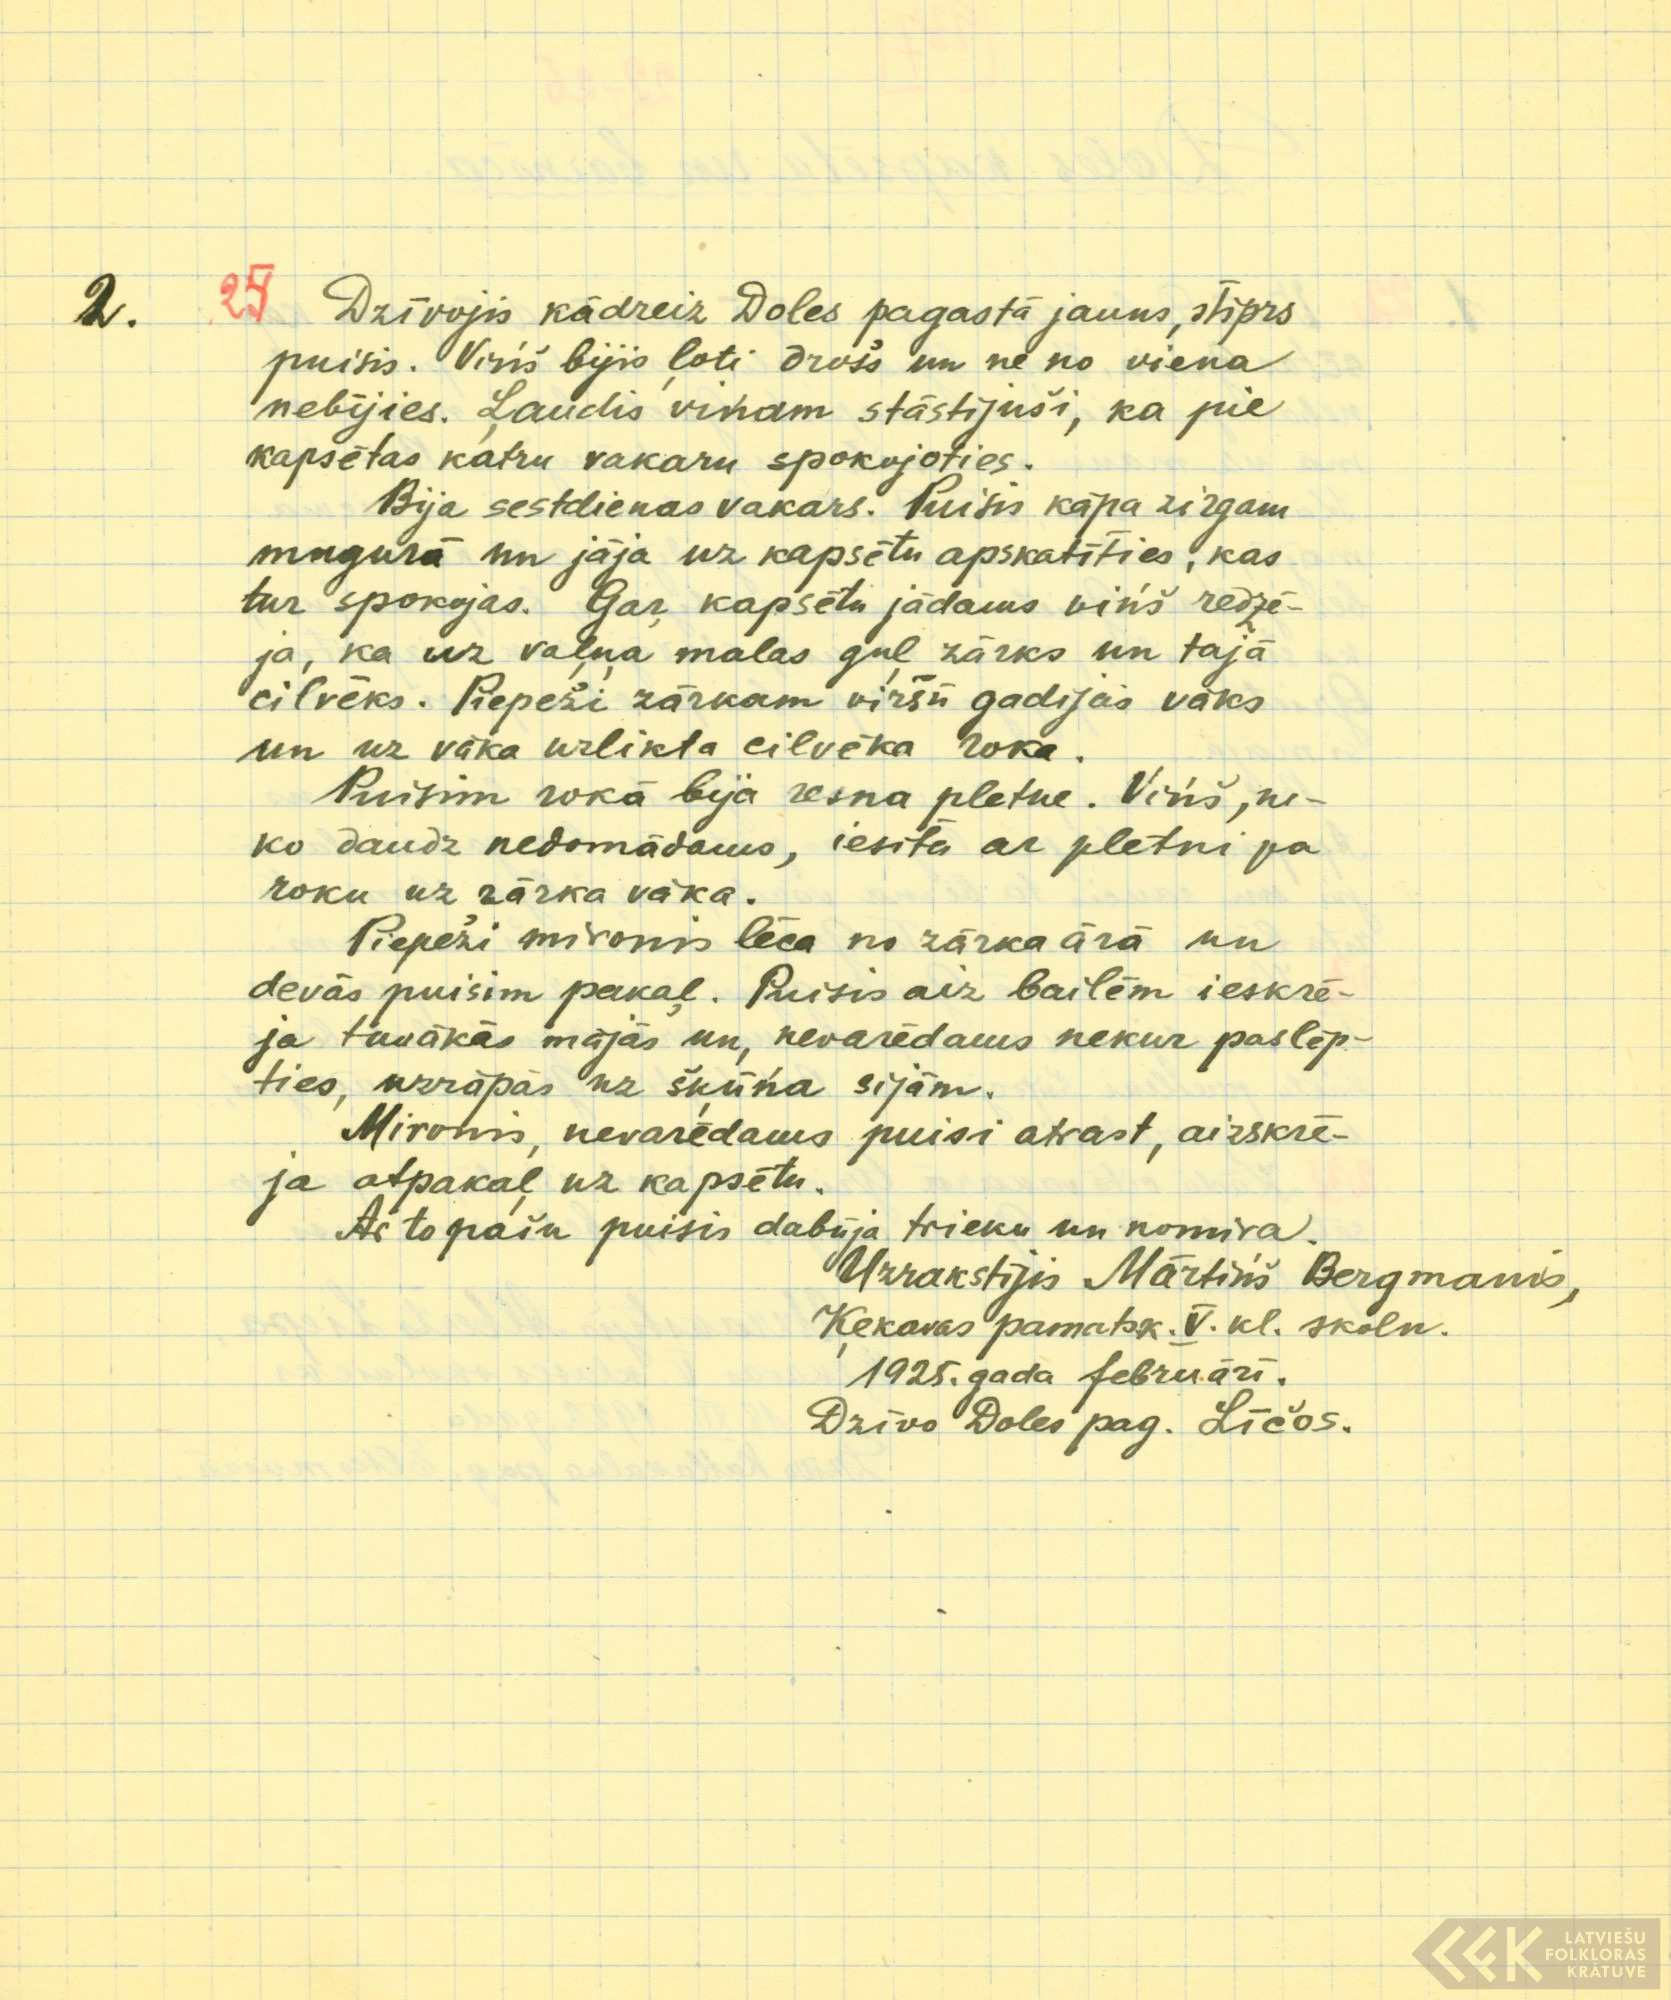 2. 25 Dzīvojis kādreiz Doles pagastā jauns, stiprs
puisis. Viņš bijis ļoti drošs un ne no viena
nebijies. Ļaudis viņam stāstijuši, ka pie
kapsētas katru vakaru spokojoties.
Bija sestdienas vakars. Puisis kāpa zirgam
mugurā un jāja uz kapsētu apskatīties, kas
tur spokojas. Gaŗ kapsētu jādams viņš redzē-
ja, ka uz vaļņa malas guļ zārks un tajā
cilvēks. Piepeži zārkam viršū gadijās vāks
un uz vāka uzlikta cilvēka roka.
Puisim rokā bija resna pletne. Viņš, ne-
ko daudz nedomādams, iesita ar pletni pa
roku uz zārka vāka.
Piepeži mironis lēca no zārka ārā un
devās puisim pakaļ. Puisis aiz bailēm ieskrē-
ja tuvākās mājās un, nevarēdams nekur paslēp-
ties, uzrāpās uz šķūņa sijām.
Mironis, nevarēdams puisi atrast, aizskrē-
ja atpakaļ uz kapsētu.
Ar to pašu puisis dabūja trieku un nomira.
Uzrakstijis Mārtiņš Bergmanis,
Ķekavas pamatsk. V. kl. skoln.
1925. gada februārī.
Dzīvo Doles pag. Līčos.
LATVIEŠU
FOLKLORAS
KRĀTUVE